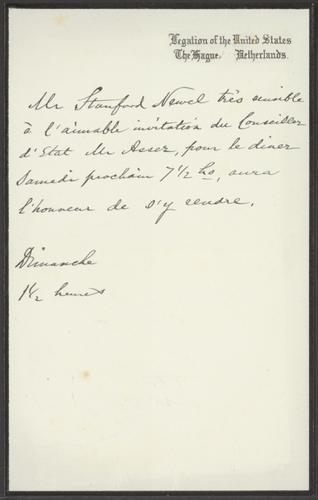 Legation of the United States
The Hague Netherlands.
Mr Stanford Newel très sensible
à l'aimable invitation du Conseiller
d'Etat Mr Asser, pour le diner
Samedi prochain 7 1/2 hs, aura
l'honneur de s'y rendre.
Dimanche
1 1/2 heures